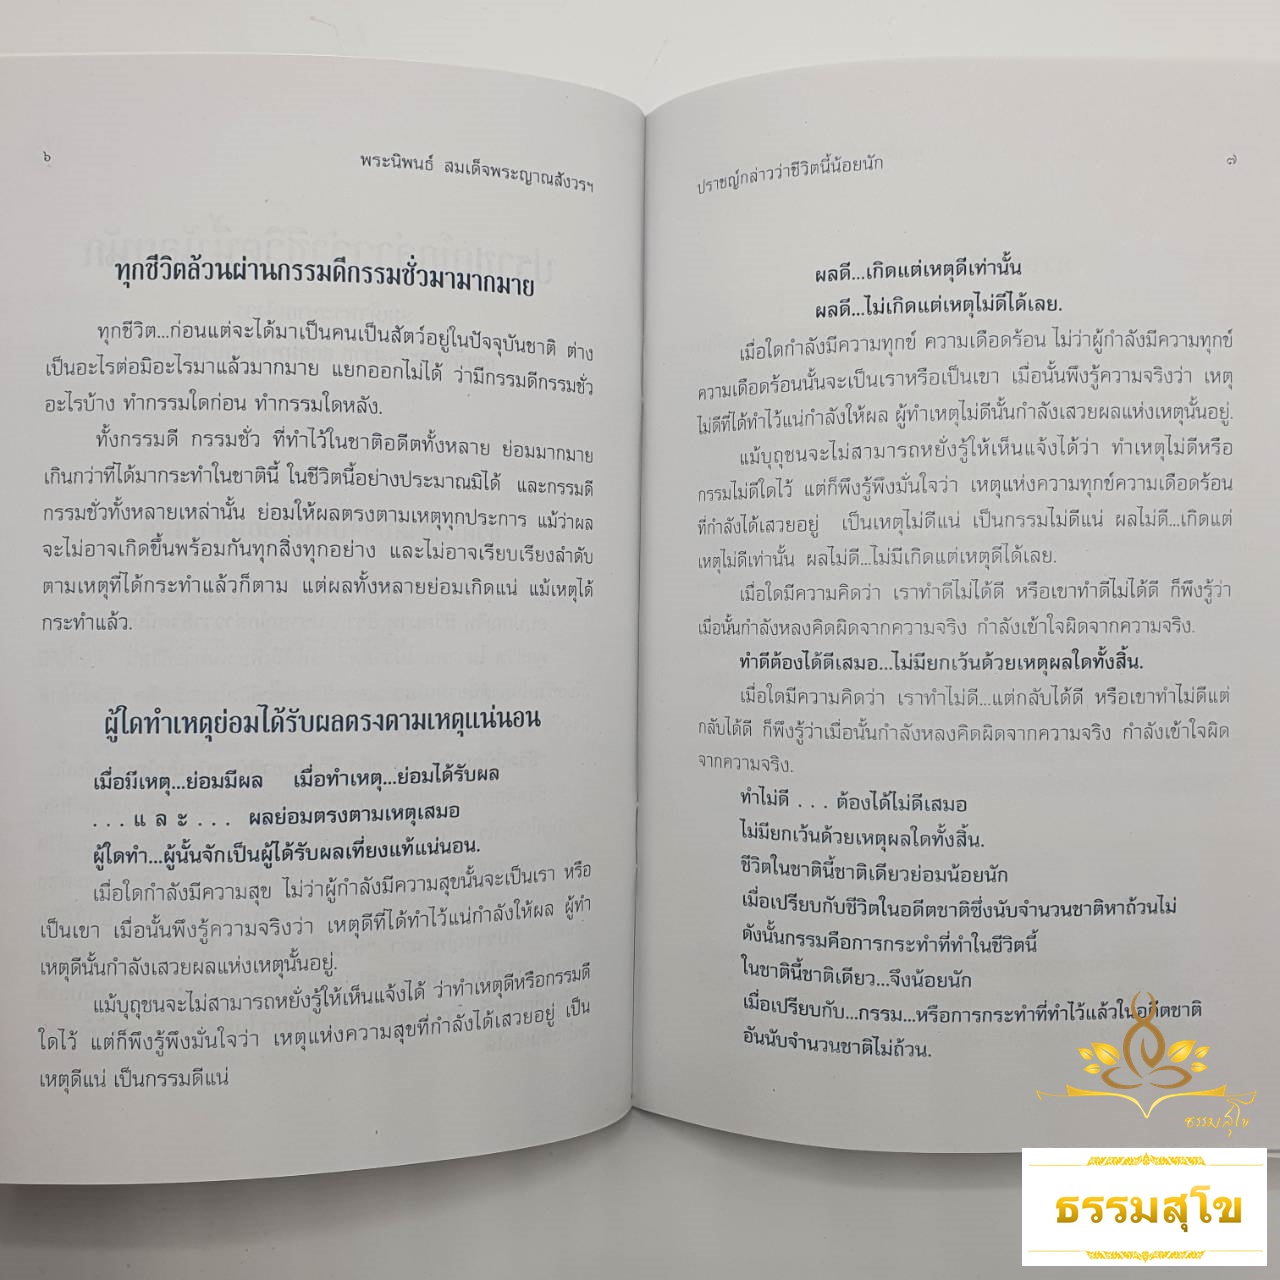 ๖
พระนิพนธ์ สมเด็จพระญาณสังวรฯ
ทุกชีวิตล้วนผ่านกรรมดีกรรมชั่วมามากมาย
ทุกชีวิต...ก่อนแต่จะได้มาเป็นคนเป็นสัตว์อยู่ในปัจจุบันชาติ ต่าง
เป็นอะไรต่อมิอะไรมาแล้วมากมาย แยกออกไม่ได้ ว่ามีกรรมดีกรรมชั่ว
อะไรบ้าง ทำกรรมใดก่อน ทำกรรมใดหลัง.
ทั้งกรรมดี กรรมชั่ว ที่ทำไว้ในชาติอดีตทั้งหลาย ย่อมมากมาย
เกินกว่าที่ได้มากระทำในชาตินี้ ในชีวิตนี้อย่างประมาณมิได้ และกรรมดี
กรรมชั่วทั้งหลายเหล่านั้น ย่อมให้ผลตรงตามเหตุทุกประการ แม้ว่าผล
จะไม่อาจเกิดขึ้นพร้อมกันทุกสิ่งทุกอย่าง และไม่อาจเรียบเรียงลำดับ
ตามเหตุที่ได้กระทำแล้วก็ตาม แต่ผลทั้งหลายย่อมเกิดแน่ แม้เหตุได้
กระทำแล้ว.
ผู้ใดทำเหตุย่อมได้รับผลตรงตามเหตุแน่นอน
เมื่อมีเหตุ...ย่อมมีผล เมื่อทำเหตุ...ย่อมได้รับผล
. . . แ ล ะ . . . ผลย่อมตรงตามเหตุเสมอ
ผู้ใดทำ...ผู้นั้นจักเป็นผู้ได้รับผลเที่ยงแท้แน่นอน.
เมื่อใดกำลังมีความสุข ไม่ว่าผู้กำลังมีความสุขนั้นจะเป็นเรา หรือ
เป็นเขา เมื่อนั้นพึงรู้ความจริงว่า เหตุดีที่ได้ทำไว้แน่กำลังให้ผล ผู้ทำ
เหตุดีนั้นกำลังเสวยผลแห่งเหตุนั้นอยู่.
แม้บุถุชนจะไม่สามารถหยั่งรู้ให้เห็นแจ้งได้ ว่าทำเหตุดีหรือกรรมดี
ใดไว้ แต่ก็พึงรู้พึงมั่นใจว่า เหตุแห่งความสุขที่กำลังได้เสวยอยู่ เป็น
เหตุดีแน่ เป็นกรรมดีแน่
ปราชญ์กล่าวว่าชีวิตนี้น้อยนัก
๗
ผลดี...เกิดแต่เหตุดีเท่านั้น
ผลดี...ไม่เกิดแต่เหตุไม่ดีได้เลย.
เมื่อใดกำลังมีความทุกข์ ความเดือดร้อน ไม่ว่าผู้กำลังมีความทุกข์
ความเดือดร้อนนั้นจะเป็นเราหรือเป็นเขา เมื่อนั้นพึงรู้ความจริงว่า เหตุ
ไม่ดีที่ได้ทำไว้แน่กำลังให้ผล ผู้ทำเหตุไม่ดีนั้นกำลังเสวยผลแห่งเหตุนั้นอยู่.
แม้บุถุชนจะไม่สามารถหยั่งรู้ให้เห็นแจ้งได้ว่า ทำเหตุไม่ดีหรือ
กรรมไม่ดีใดไว้ แต่ก็พึงรู้พึงมั่นใจว่า เหตุแห่งความทุกข์ความเดือดร้อน
ที่กำลังได้เสวยอยู่ เป็นเหตุไม่ดีแน่ เป็นกรรมไม่ดีแน่ ผลไม่ดี...เกิดแต่
เหตุไม่ดีเท่านั้น ผลไม่ดี...ไม่มีเกิดแต่เหตุดีได้เลย.
เมื่อใดมีความคิดว่า เราทำดีไม่ได้ดี หรือเขาทำดีไม่ได้ดี ก็พึงรู้ว่า
เมื่อนั้นกำลังหลงคิดผิดจากความจริง กำลังเข้าใจผิดจากความจริง.
ทำดีต้องได้ดีเสมอ...ไม่มียกเว้นด้วยเหตุผลใดทั้งสิ้น.
เมื่อใดมีความคิดว่า เราทำไม่ดี...แต่กลับได้ดี หรือเขาทำไม่ดีแต่
กลับได้ดี ก็พึงรู้ว่าเมื่อนั้นกำลังหลงคิดผิดจากความจริง กำลังเข้าใจผิด
จากความจริง.
ทำไม่ดี . . . ต้องได้ไม่ดีเสมอ
ไม่มียกเว้นด้วยเหตุผลใดทั้งสิ้น.
ชีวิตในชาตินี้ชาติเดียวย่อมน้อยนัก
เมื่อเปรียบกับชีวิตในอดีตชาติซึ่งนับจำนวนชาติหาถ้วนไม่
ดังนั้นกรรมคือการกระทำที่ทำในชีวิตนี้
ในชาตินี้ชาติเดียว...จึงน้อยนัก
เมื่อเปรียบกับ...กรรม...หรือการกระทำที่ทำไว้แล้วในอดีตชาติ
อันนับจำนวนชาติไม่ถ้วน.
ธรรมสุโข
ธรรมสุโข